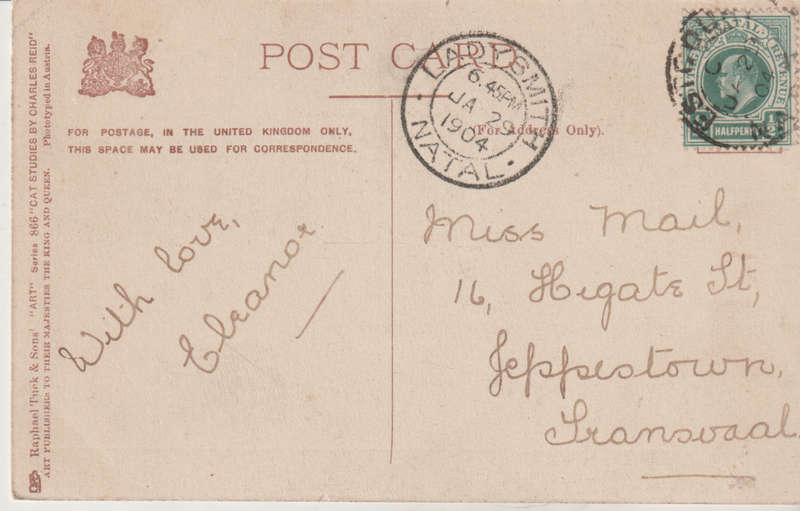 POST CARD
LADYSMITH
6.45PM
JA 29
1904
NATAL
NATAL REVENUE
HALFPENNY
FOR POSTAGE, IN THE UNITED KINGDOM ONLY,
THIS SPACE MAY BE USED FOR CORRESPONDENCE.
(For Address Only).
With love,
Eleanor
Miss Mail,
16, Higate St,
Jeppestown,
Transvaal
Raphael Tuck & Sons' "ART" Series 866 "CAT STUDIES BY CHARLES REID"
ART PUBLISHERS TO THEIR MAJESTIES THE KING AND QUEEN. Phototyped in Austria.